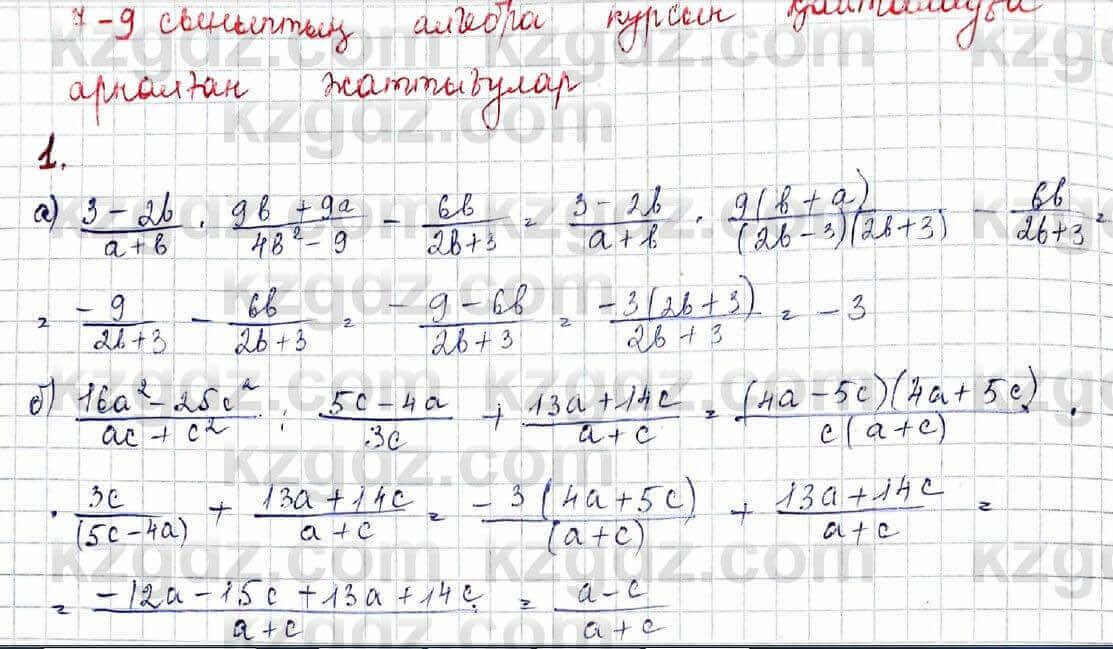 7-9 сыныптың алгебра курсын қайталауға
арналған жаттығулар
1.
а) \frac{3-2b}{a+b} \cdot \frac{9b+9a}{4b^2-9} - \frac{6b}{2b+3} = \frac{3-2b}{a+b} \cdot \frac{9(b+a)}{(2b-3)(2b+3)} - \frac{6b}{2b+3} =
= \frac{-9}{2b+3} - \frac{6b}{2b+3} = \frac{-9-6b}{2b+3} = \frac{-3(2b+3)}{2b+3} = -3
б) \frac{16a^2-25c^2}{ac+c^2} : \frac{5c-4a}{3c} + \frac{13a+14c}{a+c} = \frac{(4a-5c)(4a+5c)}{c(a+c)} \cdot
\cdot \frac{3c}{(5c-4a)} + \frac{13a+14c}{a+c} = \frac{-3(4a+5c)}{(a+c)} + \frac{13a+14c}{a+c} =
= \frac{-12a-15c+13a+14c}{a+c} = \frac{a-c}{a+c}
kzgdz.com